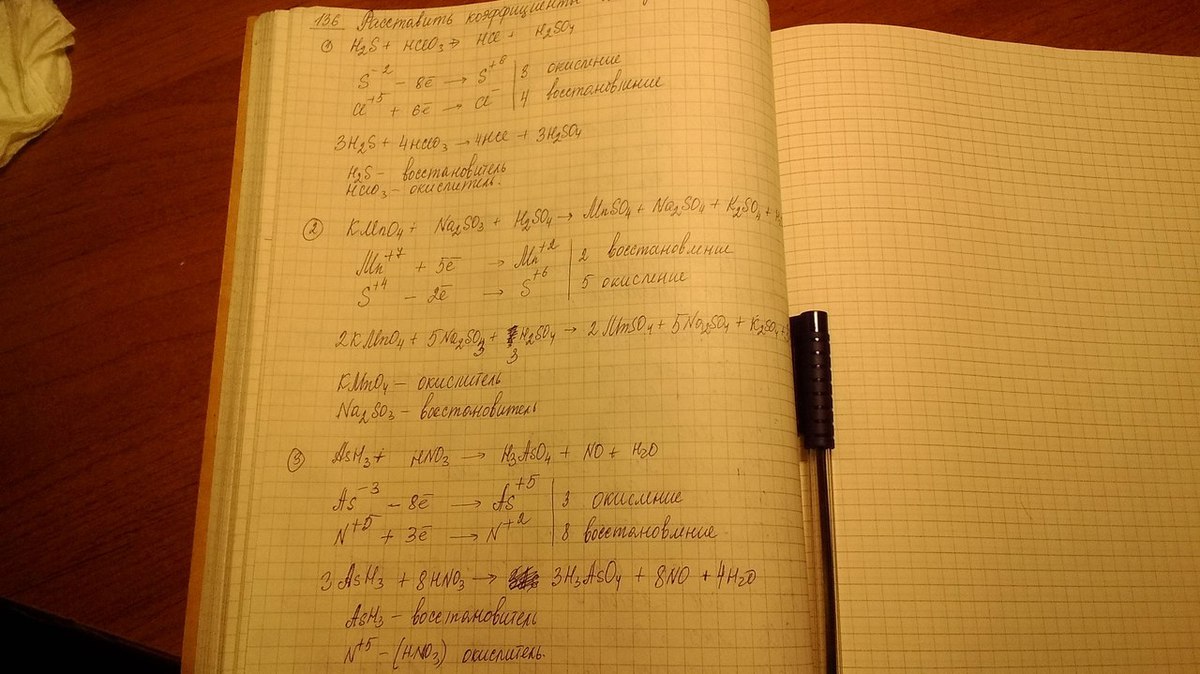 136 Расставить коэффициенты
① H₂S + HClO₃ → HCl + H₂SO₄
S⁻² − 8ē → S⁺⁶ | 3 окисление
Cl⁺⁵ + 6ē → Cl⁻ | 4 восстановление
3H₂S + 4HClO₃ → 4HCl + 3H₂SO₄
H₂S − восстановитель
HClO₃ − окислитель.
② KMnO₄ + Na₂SO₃ + H₂SO₄ → MnSO₄ + Na₂SO₄ + K₂SO₄ +
Mn⁺⁷ + 5ē → Mn⁺² | 2 восстановление
S⁺⁴ − 2ē → S⁺⁶ | 5 окисление
2KMnO₄ + 5Na₂SO₃ + 3H₂SO₄ → 2MnSO₄ + 5Na₂SO₄ + K₂SO₄ +
KMnO₄ − окислитель
Na₂SO₃ − восстановитель
③ AsH₃ + HNO₃ → H₃AsO₄ + NO + H₂O
As⁻³ − 8ē → As⁺⁵ | 3 окисление
N⁺⁵ + 3ē → N⁺² | 8 восстановление
3AsH₃ + 8HNO₃ → 3H₃AsO₄ + 8NO + 4H₂O
AsH₃ − восстановитель
N⁺⁵ − (HNO₃) окислитель.